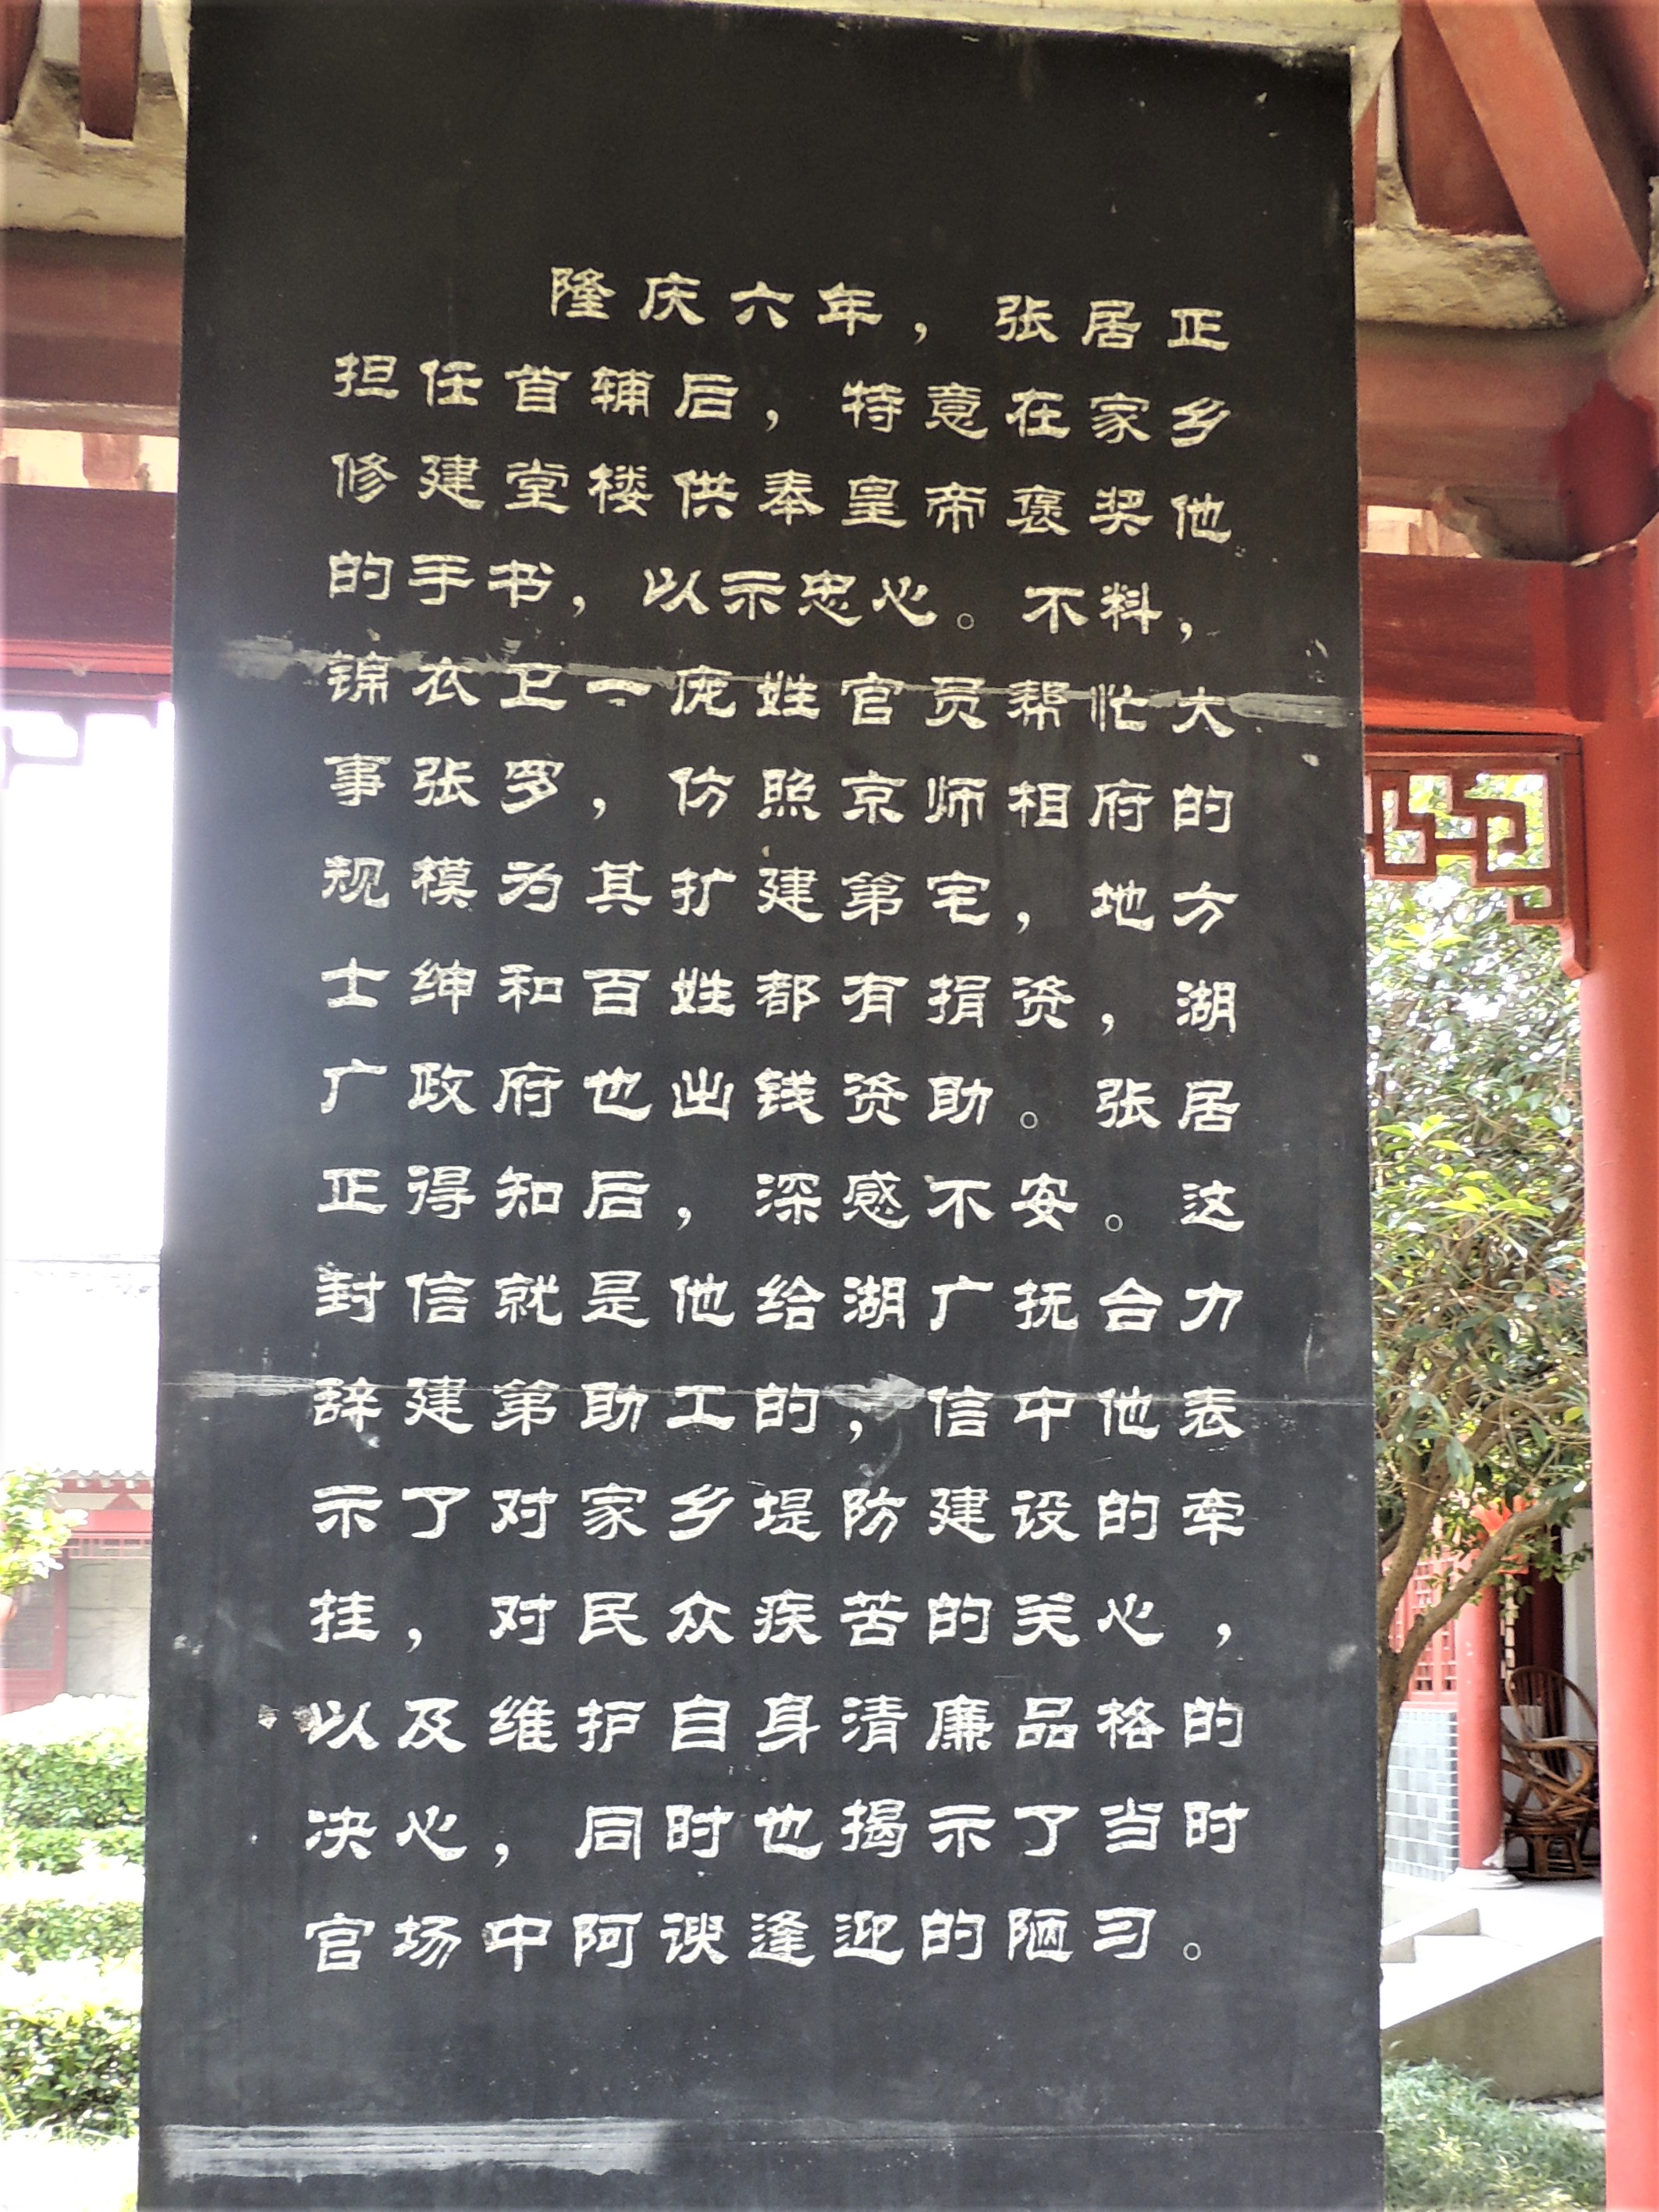 隆庆六年，张居正
担任首辅后，特意在家乡
修建堂楼供奉皇帝褒奖他
的手书，以示忠心。不料，
锦衣卫一庞姓官员帮忙大
事张罗，仿照京师相府的
规模为其扩建第宅，地方
士绅和百姓都有捐资，湖
广政府也出钱资助。张居
正得知后，深感不安。这
封信就是他给湖广抚台力
辞建第助工的，信中他表
示了对家乡堤防建设的牵
挂，对民众疾苦的关心，
以及维护自身清廉品格的
决心，同时也揭示了当时
官场中阿谀逢迎的陋习。